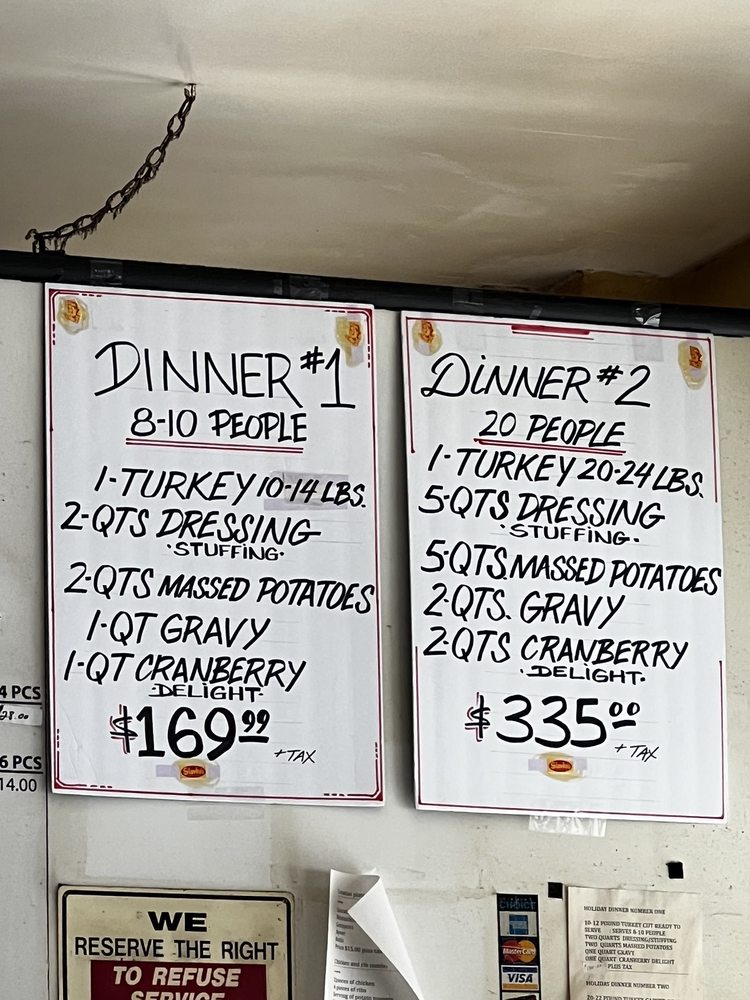 DINNER #1
8-10 PEOPLE
1-TURKEY 10-14 LBS.
2-QTS DRESSING
·STUFFING·
2-QTS MASSED POTATOES
1-QT GRAVY
1-QT CRANBERRY
DELIGHT·
$169.99
+TAX
DINNER #2
20 PEOPLE
1-TURKEY 20-24 LBS.
5-QTS DRESSING
·STUFFING·
5-QTS. MASSED POTATOES
2-QTS. GRAVY
2-QTS CRANBERRY
·DELIGHT·
$335.00
+TAX
4 PCS
6 PCS
14.00
WE
RESERVE THE RIGHT
TO REFUSE
SERVICE
MasterCard
VISA
HOLIDAY DINNER NUMBER ONE
10-12 POUND TURKEY CUT READY TO
SERVE : SERVES 8-10 PEOPLE
TWO QUARTS DRESSING/STUFFING
TWO QUARTS MASSED POTATOES
ONE QUART GRAVY
ONE QUART CRANBERRY DELIGHT
PLUS TAX
HOLIDAY DINNER NUMBER TWO
20-22 POUND